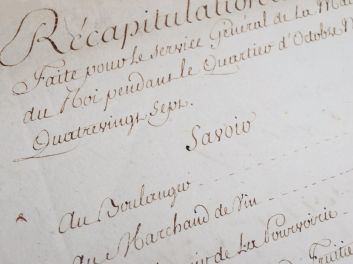 Récapitulation
Faite pour le service Général de La
du Roi pendant le Quartier d'Octobre
Quatrevingt sept.
Savoir
Au Boulanger
Au Marchand de Vin
de La Pourvoirie
Fruitier